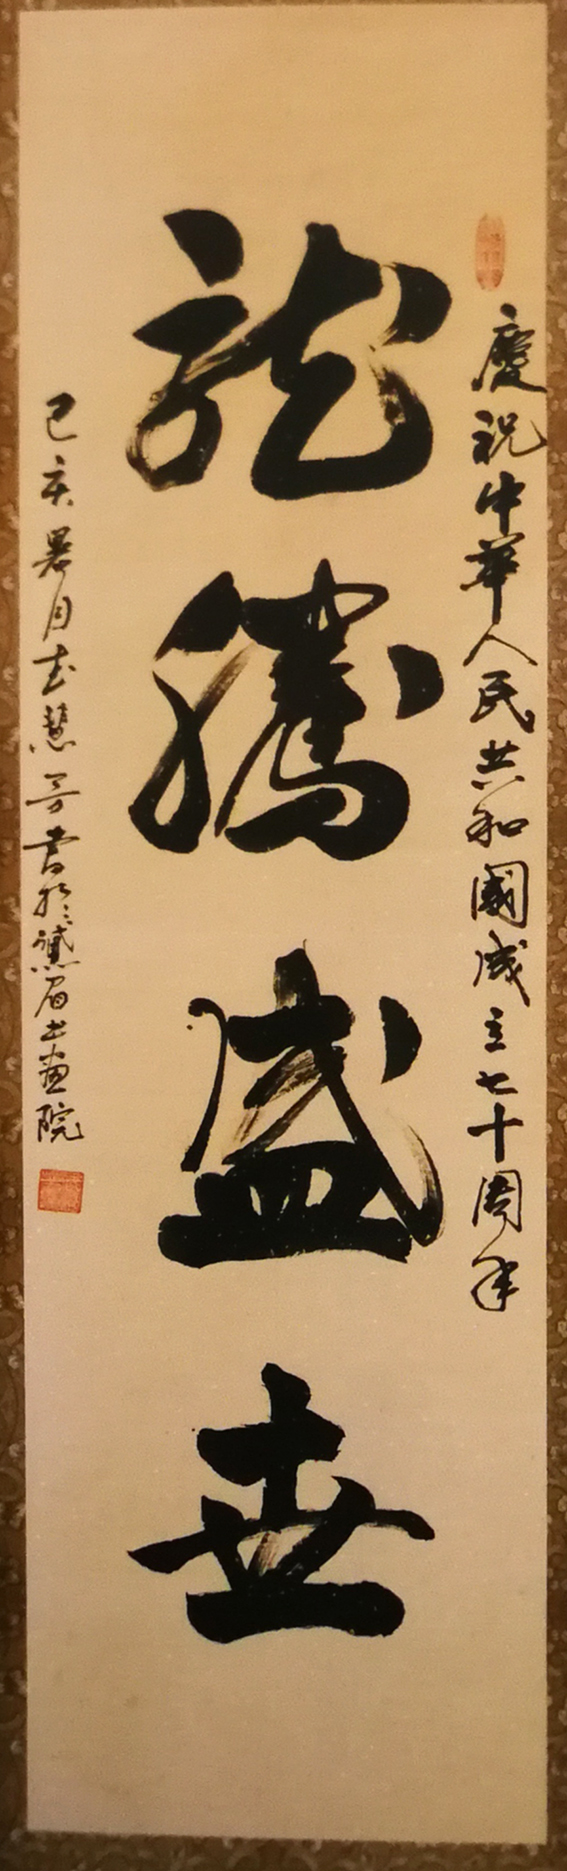 慶祝中華人民共和國成立七十周年
龍騰盛世
己亥暑月
慧芳書於黛眉書畫院